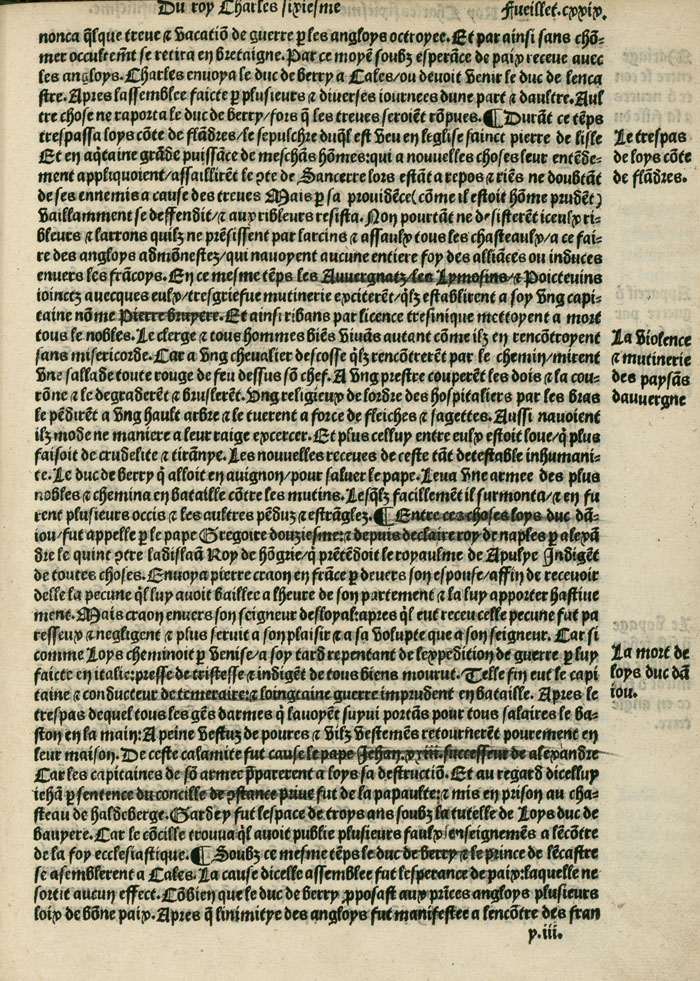 Du roy Charles sixiesme
Fueillet.cxxix.
nonca q̃lque treue & vacatiõ de guerre ꝑ les angloys octroyee. Et par ainsi sans chõ-
mer occultemẽt se retira en bretaigne. Par ce moyẽ soubz esperãce de paix receue auec
les angloys. Charles enuoya le duc de berry a Cales/ou deuoit venir le duc de lenca
stre. Apres lassemblee faicte ꝑ plusieurs & diuerses iournees dune part & daultre. Aul
tre chose ne raporta le duc de berry/fors q̃ les treues seroiẽt rõpues. ¶ Durãt ce tẽps
trespassa loys cõte de flãdres/le sepulchre duq̃l est veu en leglise sainct pierre de lisle
Et en aq̃taine grãde puissãce de meschãs hõmes:qui a nouuelles choses leur entẽde-
ment appliquoient/assaillirẽt le ꝯte de Sancerre lors estãt a repos & riẽs ne doubtãt
de ses ennemis a cause des treues Mais ꝑ sa prouidẽce(cõme il estoit hõme prudẽt)
vaillamment se deffendit/& aux ribleurs resista. Non pourtãt ne desisterẽt iceulx ri-
bleurs & larrons quilz ne prẽsissent par larcins & assaulx tous les chasteaulx/a ce fai-
re des angloys admõnestez/qui nauoyent aucune entiere foy des alliãces ou induces
enuers les frãcoys. En ce mesme tẽps les Auuergnatz/les Lymosins/& Poicteuins
ioinctz auecques eulx/tresgriefue mutinerie exciterẽt/q̃lz establirent a soy vng capi-
taine nõme Pierre bruyere. Et ainsi ribans par licence tresinique mettoyent a mort
tous le nobles. Le clerge & tous hommes biẽs viuãs autant cõme ilz en rencõtroyent
sans misericorde. Car a vng cheualier descosse q̃lz rencõtrerẽt par le chemin/mirent
vne sallade toute rouge de feu dessus sõ chef. A vng prestre couperẽt les dois & la cou-
rõne & le degraderẽt & bruslerẽt. Vng religieux de lordre des hospitaliers par les bras
le pẽdirẽt a vng hault arbre & le tuerent a force de fleiches & sagettes. Aussi nauoient
ilz mode ne maniere a leur raige excercer. Et plus celluy entre eulx estoit loue/q̃ plus
faisoit de crudelite & tirãnye. Les nouuelles receues de ceste tãt detestable inhumani-
te. Le duc de berry q̃ alloit en auignon/pour saluer le pape. Leua vne armee des plus
nobles & chemina en bataille cõtre les mutins. Lesq̃lz facillemẽt il surmonta/& en fu
rent plusieurs occis & les aultres pẽduz & estrãglez. ¶ Entre ces choses loys duc dã-
iou/fut appelle ꝑ le pape Gregoire douziesme:& depuis declaire roy de naples ꝑ alexã
dre le quint ꝯtre ladislaũ Roy de hõgrie/q̃ prẽtẽdoit le royaulme de Apulye Indigẽt
de toutes choses. Enuoya pierre craon en frãce ꝑ deuers son espouse/affin de receuoir
delle la pecune q̃l luy auoit baillee a lheure de son partement & la luy apporter hastiue
ment. Mais craon enuers son seigneur desloyal:apres q̃l eut receu celle pecune fut pa
resseux & negligent & plus seruit a son plaisir & a sa volupte que a son seigneur. Car si
comme Loys cheminoit ꝑ Venise/a soy tard repentant de lexpedition de guerre ꝑ luy
faicte en italie:presse de tristesse & indigẽt de tous biens mourut. Telle fin eut le capi
taine & conducteur de temeraire & loingtaine guerre imprudent en bataille. Apres le
trespas dequel tous les gẽs darmes q̃ lauoyẽt suyui portãs pour tous salaires le ba-
ston en la main: A peine vestuz de poures & vilz vestemẽs retournerẽt pourement en
leur maison. De ceste calamite fut cause le pape Jehan.xxiii.successeur de alexandre
Car les capitaines de sõ armee p̃parerent a loys sa destructiõ. Et au regard dicelluy
iehã ꝑ sentence du concille de ꝯstance priue fut de la papaulte:& mis en prison au cha-
steau de haldeberge. Garde y fut lespace de troys ans soubz la tutelle de Loys duc de
bauyere. Car le cõcille trouua q̃l auoit publie plusieurs faulx enseignemẽs a lẽcõtre
de la foy ecclesiastique. ¶ Soubz ce mesme tẽps le duc de berry & le prince de lẽcastre
se asemblerent a Cales. La cause dicelle assemblee fut lesperance de paix:laquelle ne
sortit aucun effect. Cõbien que le duc de berry ꝓposast aux prĩces angloys plusieurs
loix de bõne paix. Apres q̃ linimitye des angloys fut manifestee a lencõtre des fran
y.iii.
Le trespas
de loys cõte
de flãdres.
La violence
& mutinerie
des paysãs
dauuergne
La mort de
loys duc dã
iou.